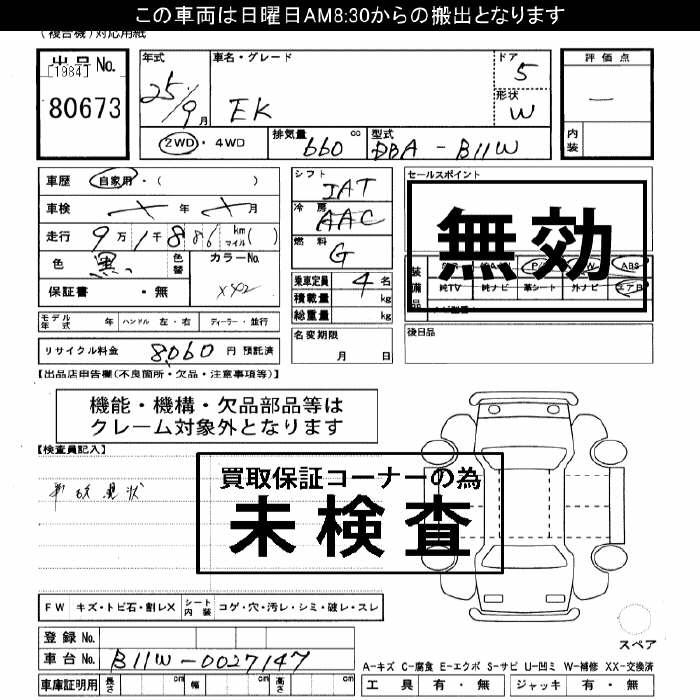 この車両は日曜日AM8:30からの搬出となります
(複合機)対応用紙
出品No.
[1984]
80673
年式 25/9月
車名・グレード EK
ドア 5
形状 W
評価点
内装
2WD・4WD 排気量 660 cc 型式 DBA-B11W
車歴 自家用・( )
車検 年 月
走行 9万1千886 km マイル( )
色 黒 色替 カラーNo. X42
保証書 ・無
シフト IAT
冷房 AAC
燃料 G
乗車定員 4名
積載量 kg
総重量 kg
名変期限 月 日
セールスポイント
無効
装備品
ABS
純TV 純ナビ 革シート 外ナビ エアB
後日品
モデル年式 年 ハンドル 左・右 ディーラー・並行
リサイクル料金 8,060 円 預託済
【出品店申告欄(不良箇所・欠品・注意事項等)】
機能・機構・欠品部品等は
クレーム対象外となります
【検査員記入】
事故現状
買取保証コーナーの為
未検査
FW キズ・トビ石・割レX シート内装 コゲ・穴・汚レ・シミ・破レ・スレ
登録No.
車台No. B11W-0027147
車庫証明用 長さ cm 幅 cm 高さ cm
スペア
A-キズ C-腐食 E-エクボ S-サビ U-凹ミ W-補修 XX-交換済
工具 有・無 ジャッキ 有・無